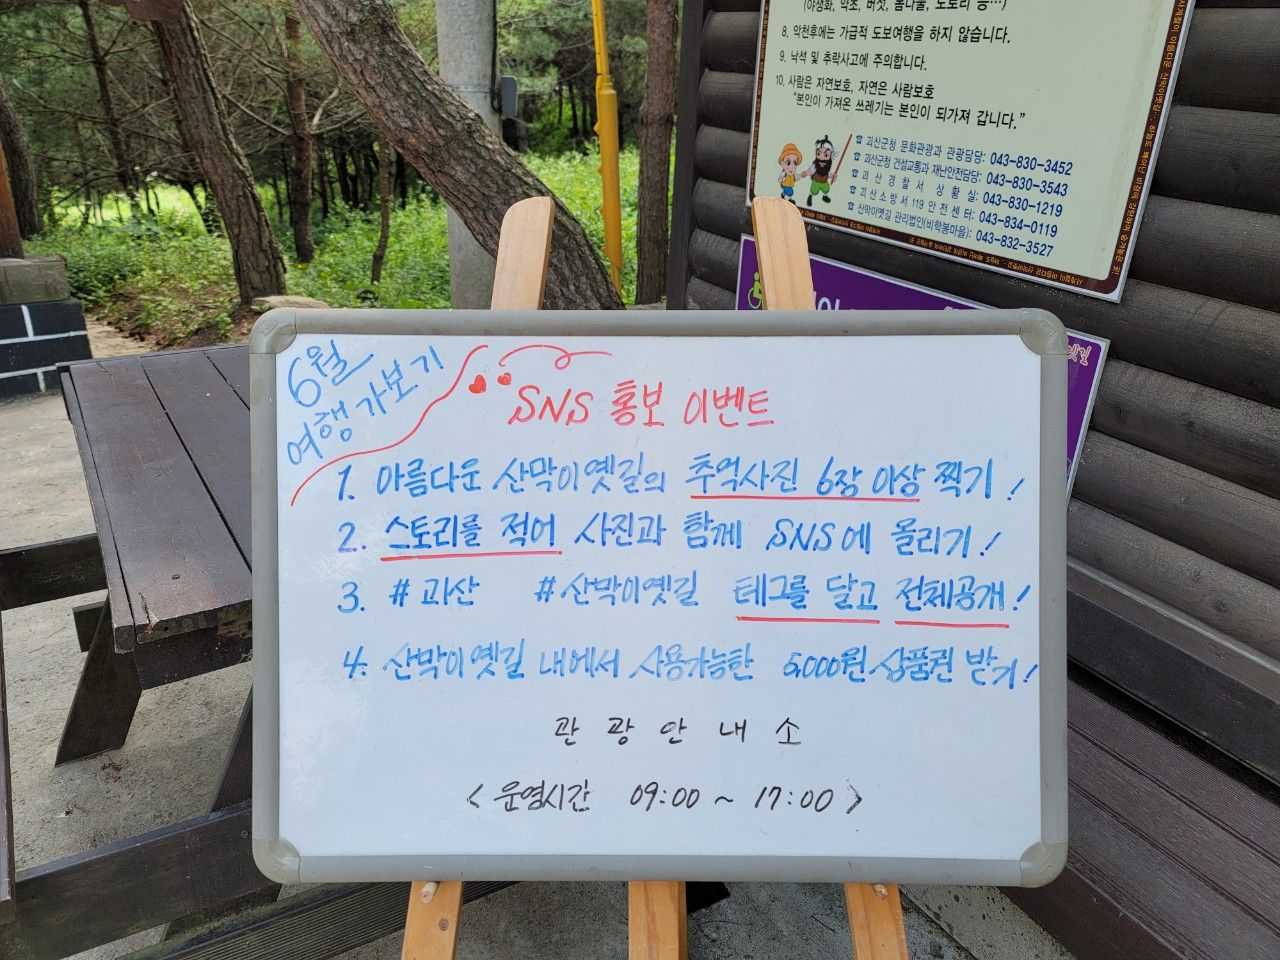 (야생화, 약초, 버섯, 봄나물, 도토리 등…)
8. 악천후에는 가급적 도보여행을 하지 않습니다.
9. 낙석 및 추락사고에 주의합니다.
10. 사람은 자연보호, 자연은 사람보호
"본인이 가져온 쓰레기는 본인이 되가져 갑니다."
☎ 괴산군청 문화관광과 관광담당: 043-830-3452
☎ 괴산군청 건설교통과 재난안전담당: 043-830-3543
☎ 괴산경찰서 상황실: 043-830-1219
☎ 괴산소방서 119 안전센터: 043-834-0119
☎ 산막이옛길 관리법인(비학봉마을): 043-832-3527
옛길
6월
여행가보기
SNS 홍보 이벤트
1. 아름다운 산막이옛길의 추억사진 6장 이상 찍기!
2. 스토리를 적어 사진과 함께 SNS에 올리기!
3. #괴산 #산막이옛길 테그를 달고 전체공개!
4. 산막이옛길 내에서 사용가능한 5,000원 상품권 받기!
관광안내소
<운영시간 09:00 ~ 17:00>